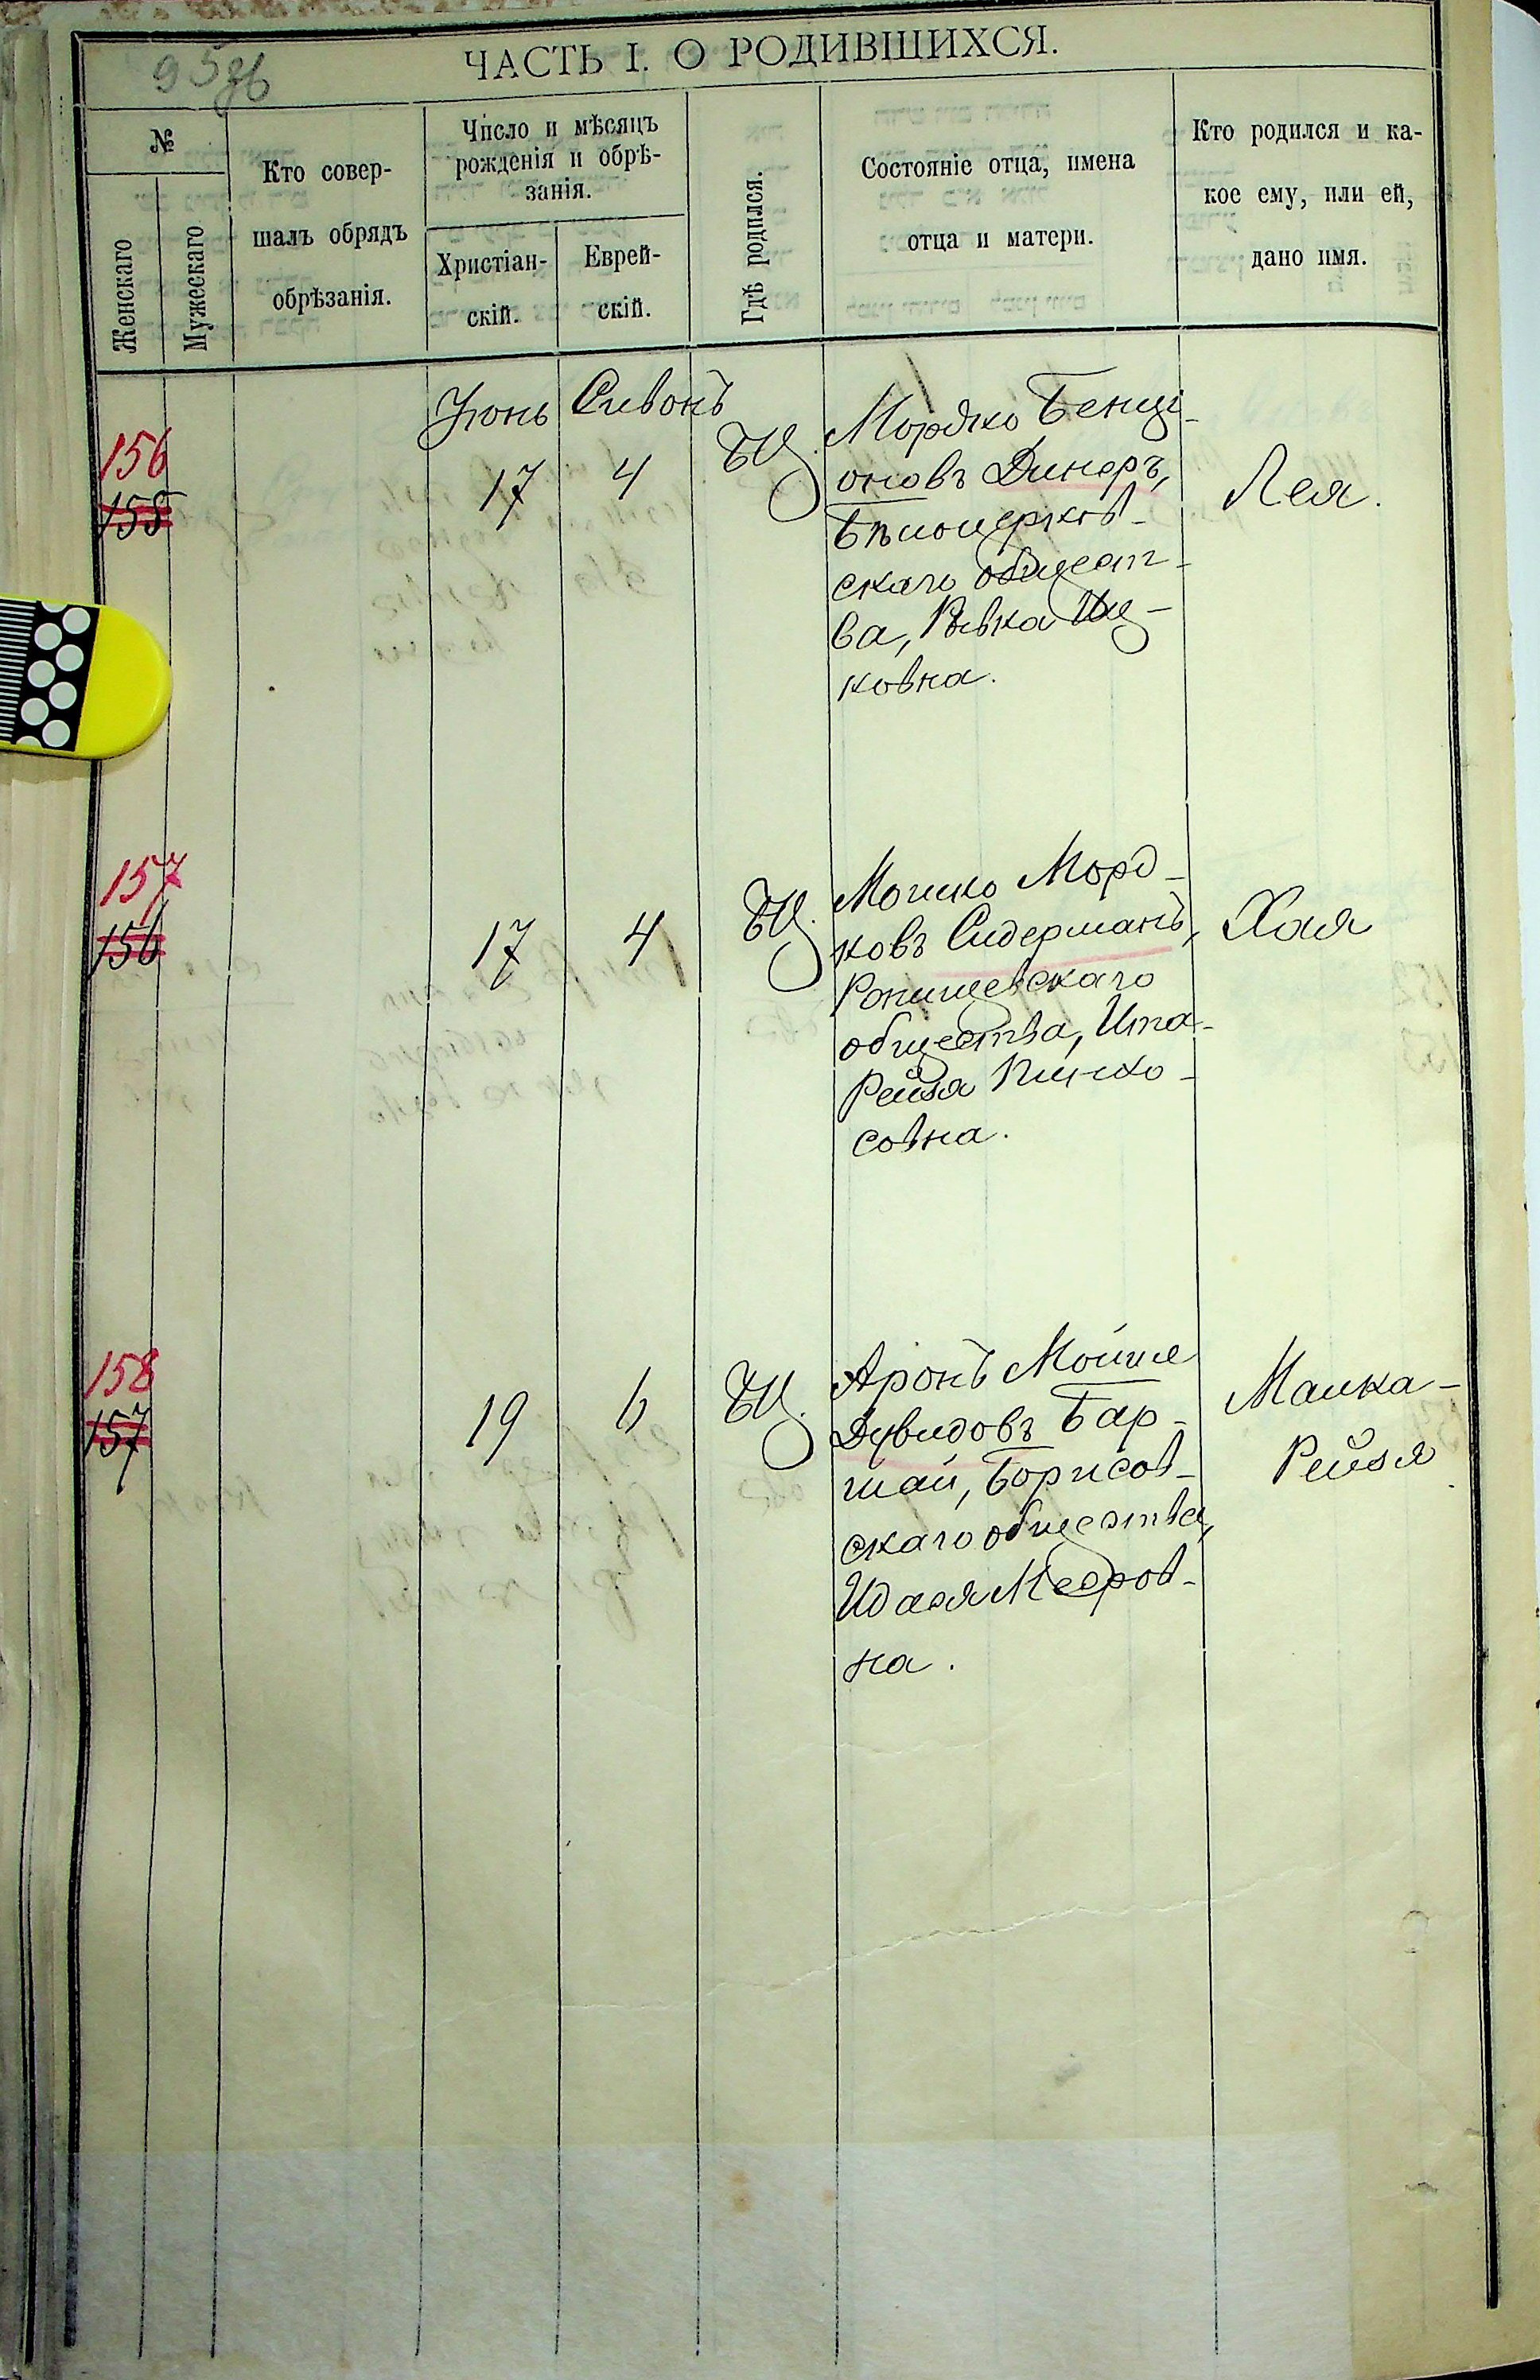 95 зв
ЧАСТЬ I. О РОДИВШИХСЯ.
№
Женскаго
Мужескаго
Кто совер-
шалъ обрядъ
обрѣзанія.
Число и мѣсяцъ
рожденія и обрѣ-
занія.
Христіан-
скій.
Еврей-
скій.
Гдѣ родился.
Состояніе отца, имена
отца и матери.
Кто родился и ка-
кое ему, или ей,
дано имя.
Іюнь Сивонъ
156
155
17
4
БЦ.
Мордко Бенці-
оновъ Динеръ,
Бѣлоцерков-
скаго общест-
ва, Ривка Иц-
ковна.
Лея.
157
156
17
4
БЦ.
Мошко Морд-
ковъ Сидерманъ,
общества, Ита-
Рейзя Пинхо-
совна.
Хая
158
157
19
6
БЦ.
Аронъ Мойше
Дувидовъ Бар-
шай, Борисов-
скаго общества,
Идася Мееров-
на.
Малка-
Рейзя